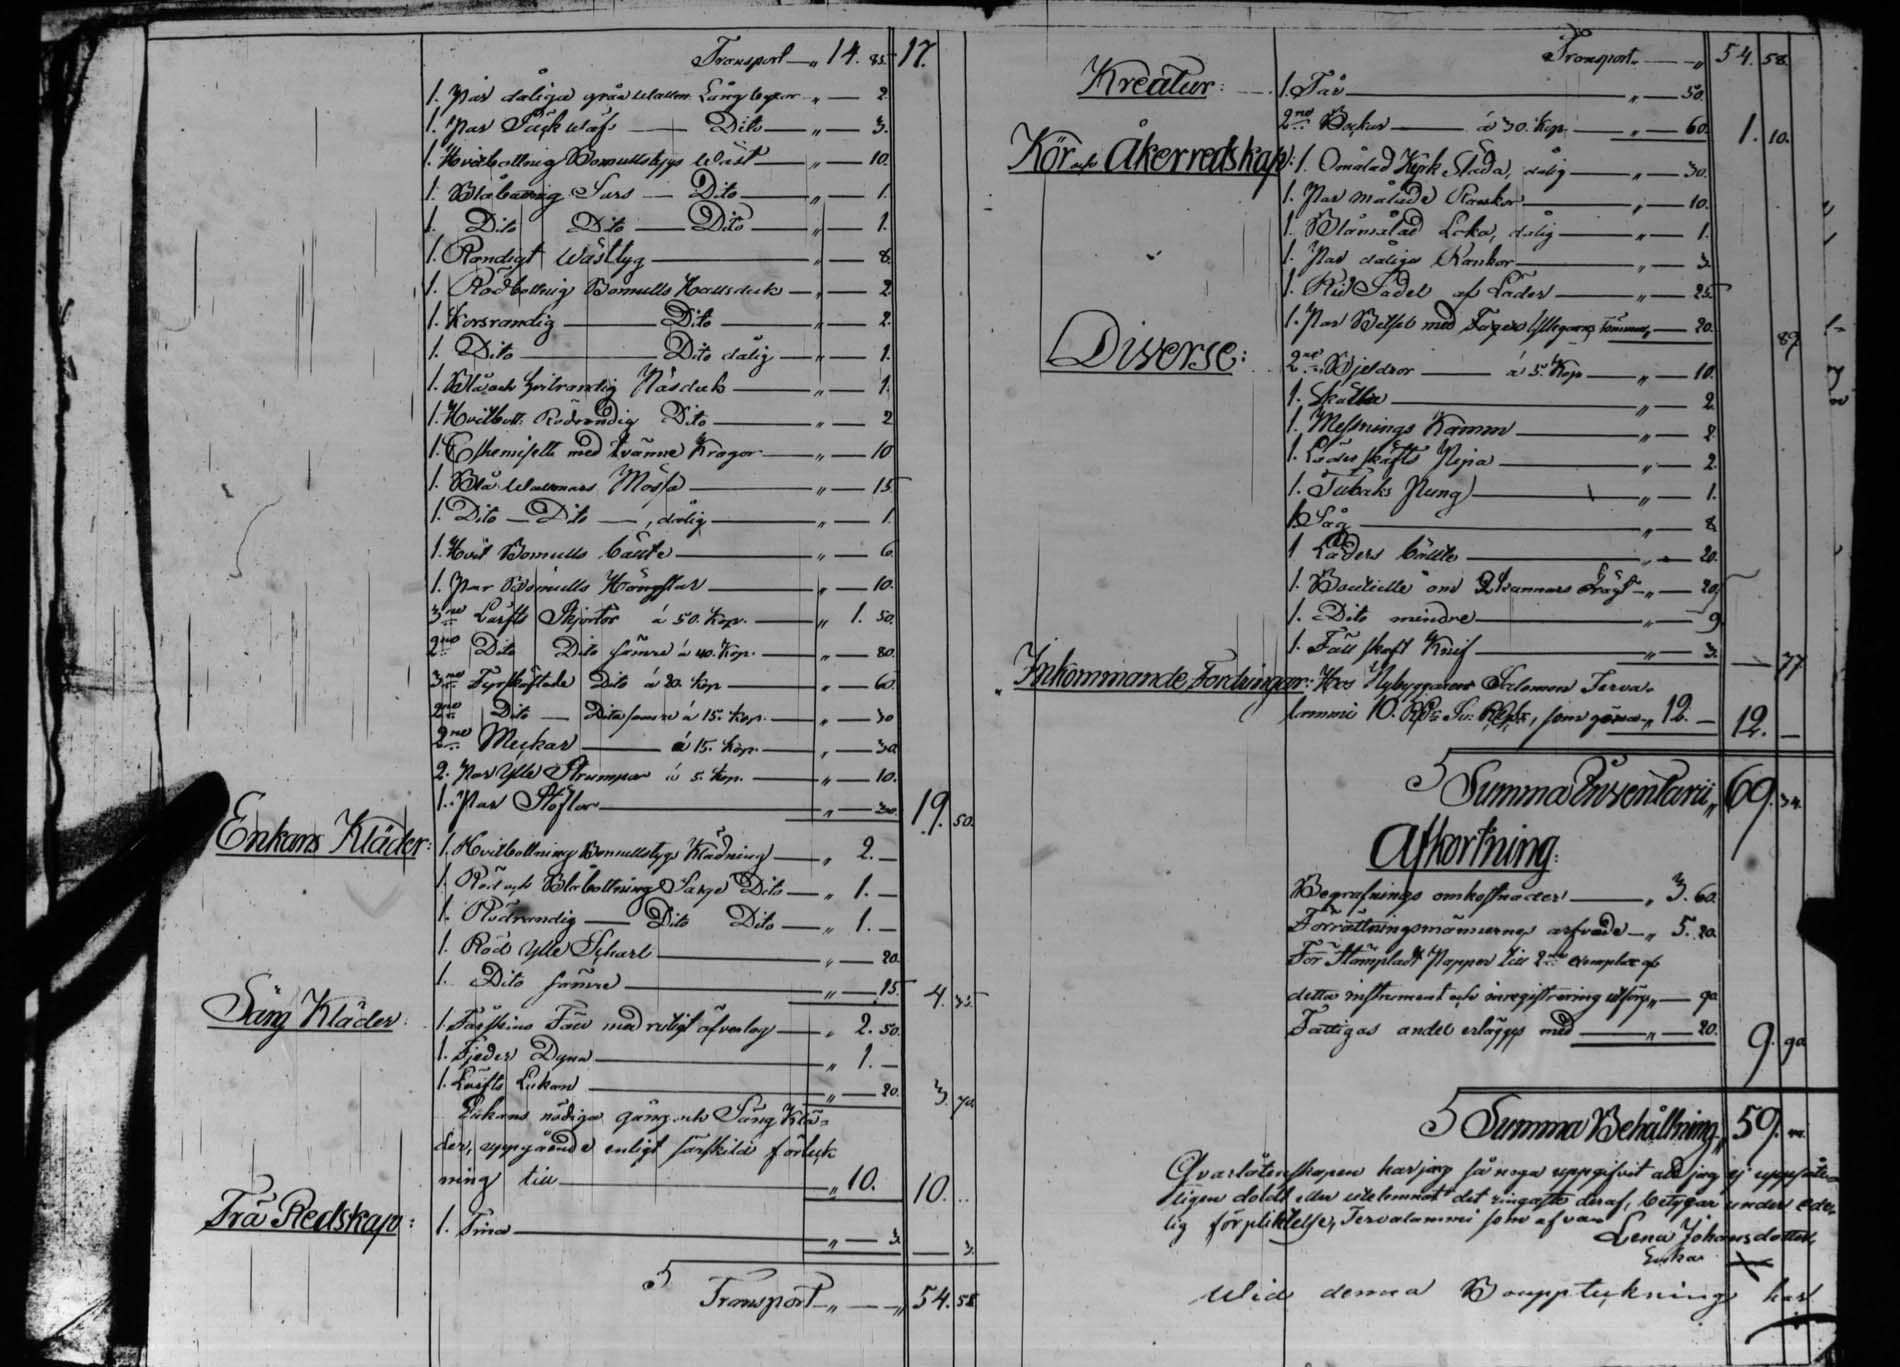 Transport „ 14. 85. 17.
1. Par dåliga gråa Wallm. Långbyxor „ 2.
1. Par Päckwäfs Dito „ 3.
1. Hvitbottnig Bomullstygs Wäst „ 10.
1. Blåbottnig Sars Dito „ 1.
1. Dito Dito Dito „ 1.
1. Randigt Wästtyg „ 8.
1. Rödbottnig Bomulls Hallsduk „ 2.
1. Korsrandig Dito „ 2.
1. Dito Dito dålig „ 1.
1. Blå och hvitrandig Näsduk „ 1.
1. Hvitbott. Rödrandig Dito „ 2
1. Chemisett med tvänne Kragor „ 10
1. Blå Wallmars Mössa „ 15
1. Dito Dito, dålig „ 1.
1. Hvit Bomulls bällte „ 6.
1. Par Bomulls Hängslar „ 10.
3ne Lärfts Skjortor á 50. Kop. „ 1. 50.
2ne Dito Dito sämre á 40. Kop. „ 80.
3ne Fyrskäftade Dito á 20. Kop. „ 60.
2ne Dito Dito sämre á 15. Kop. „ 30
2ne Myckar á 15. Kop. „ 30
2. Par Ylle Strumpor á 5. Kop. „ 10.
1. Par Stöflar „ 30. 19. 50.
Enkans Kläder:
1. Hvitbottning Bomullstygs Klädning „ 2. —
1. Röd och Blåbottning Sarge Dito „ 1. —
1. Rödrandig Dito Dito „ 1. —
1. Röd Ylle Scharl „ 20.
1. Dito sämre „ 15. 4. 35.
Säng Kläder:
1. Fårskins Fäll med rutigt öfverlag „ 2. 50.
1. Fjeder Dyna „ 1. —
1. Lärfts Lakan „ 20. 3. 70.
Enkans nödiga gång och Säng Klä-
der, uppgående enligt särskild förtäck
ning till „ 10. 10. ..
Trä Redskap:
1. Tina „ 3. — 3.
S Transport „ 54. 58.
Transport „ 54. 58.
Kreatur: 1. Får „ 50.
2ne Bockar á 30. Kop. „ 60. 1. 10.
Kör och Åkerredskap: 1. Omålad Kyrk Släda, dålig „ 30.
1. Par målade Rankor „ 10.
1. Blåmålad Loka, dålig „ 1.
1. Par dåliga Rankor „ 3.
1. Rid Sadel af Läder „ 25.
1. Par Betsel med Yllegarns tömmar „ 20. 89.
Diverse: 2ne Bjeldror á 5. Kop. „ 10.
1. Skälla „ 2.
1. Messnings Kamm „ 2.
1. Läderskafts Pipa „ 2.
1. Tobaks Pung „ 1.
1. Såg „ 8.
1 Läders bällte „ 20.
1. Bouteille om 2 kannors „ 20
1. Dito mindre „ 9
1. Fällskaft Knif „ 3. — 77
Inkommande Fordringar: Hos Nybyggaren Salomon Terva-
lammi 10. Rd. Sv. Rgs., som göra „ 12. — 12. —
S Summa Inventarii „ 69. 34.
Afkortning:
Begrafnings omkostnader „ 3. 60.
Förrättningsmännernes arfvode „ 5. 20.
För Stämpladt Papper till 2ne exemplar af
detta instrument och inregistrering utförs „ 90
Fattigas andel erlägges med „ 20. 9. 90
S Summa Behållning, „ 59.
Qvarlåtenskapen har jag så noga uppgifvit att jag ej uppsåte-
ligen doldt eller utelemnat det ringaste deraf, betygar under ede-
lig förpliktelse, Tervalammi som ofvan
Lena Johansdotter,
Enka
Wid denna Bouppteckning har